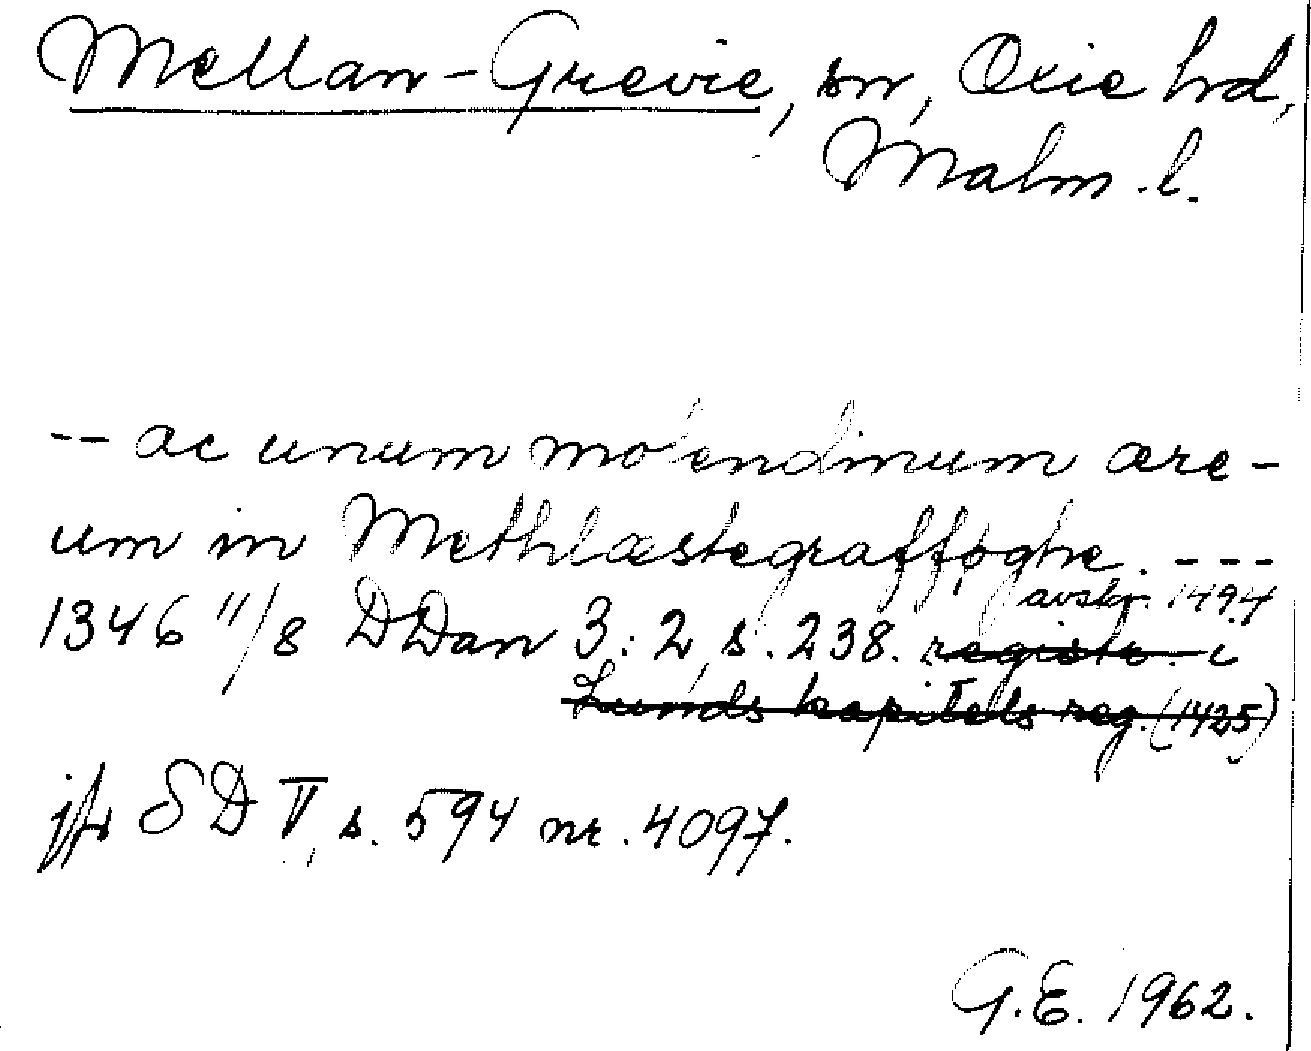 Mellan-Grevie, sn, Oxie hd,
Malm. l.
-- ac unum molendinum ære-
um in Methlæstegrafføghe. ---
avskr. 1494
1346 11/8 DDan 3:2, s. 238. registr. i
Lunds kapitels reg. (1425)
jfr SD V, s. 594 nr. 4097.
G.E. 1962.